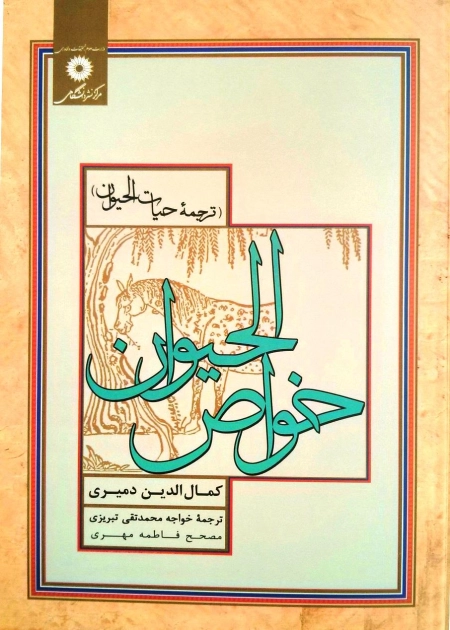 مرکز نشر دانشگاهی
(ترجمهٔ حیات الحیوان)
خواص الحیوان
کمال الدین دمیری
ترجمهٔ خواجه محمدتقی تبریزی
مصحح فاطمه مهری